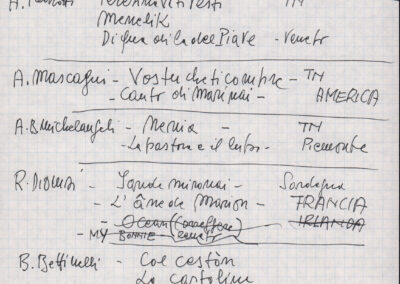 Menelik
Di qua di là del Piave - Veneto
A. Mascagni - Vostu che ti compre - TN
- Canto di Marinai - AMERICA
A. B. Michelangeli - Nenia - TN
- La pastora e il lupo - Piemonte
R. Dionisi - Sardegna
- L'âne de Marion - FRANCIA
- Ocean IRLANDA
- MY BONNIE
B. Bettinelli - Col cestòn
La Cartolina